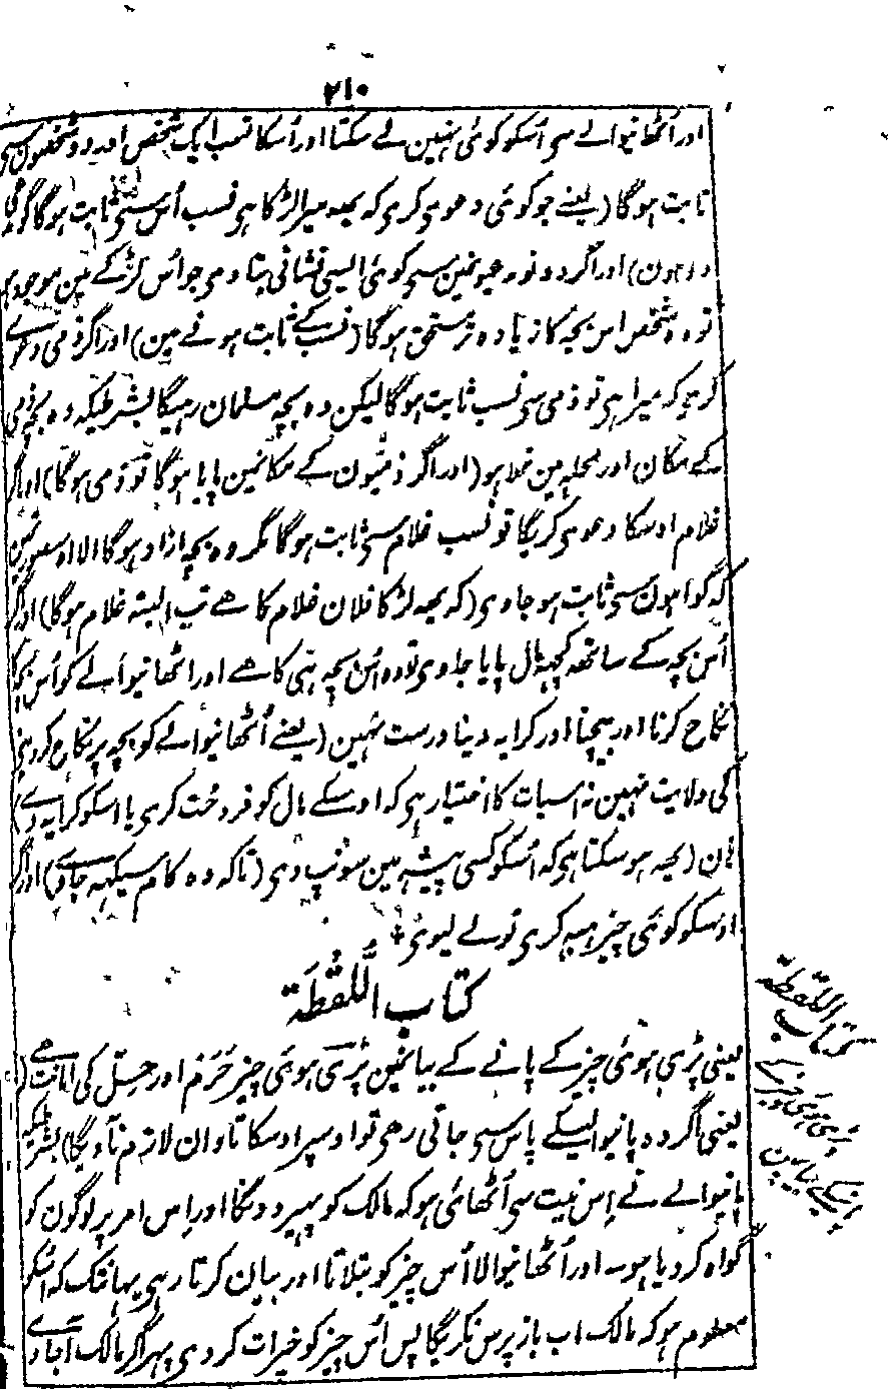 ۲۱۰
اور اُٹھا نیوالے سی اُسکو کوئی نہین لے سکتا اور اُسکا نسب ایک شخص اور دو شخصون سی
ثابت ہوگا (یعنے جو کوئی دعوی کری کہ یہہ میرا لڑکا ہی نسب اُس سی ثابت ہوگا گو
دو ہون) اور اگر دونو مدعیونمین سی کوئی ایسی نشانی بتا وی جو اُس لڑکے مین موجود ہی
تو وہ شخص اس بچہ کا زیادہ تر مستحق ہوگا (نسب کے ثابت ہونے مین) اور اگر ذمی دعوے
کری کہ میرا ہی تو ذمی سی نسب ثابت ہوگا لیکن وہ بچہ مسلمان رہیگا بشرطیکہ وہ بچہ ذمی
کے مکان اور محلہ مین نملا ہو (اور اگر ذمیون کے مکانمین پایا ہوگا تو ذمی ہوگا) اور اگر
غلام اوسکا دعوی کریگا تو نسب غلام سی ثابت ہوگا مگر وہ بچہ ازاد ہوگا الا اوسصورتمین
کہ گواہون سی ثابت ہو جاوی (کہ یہہ لڑکا فلان غلام کا ہے تب البتہ غلام ہوگا) اور اگر
اُس بچہ کے ساتھہ کچہہ مال پایا جاوی تو وہ اُس بچہ ہی کا ہے اور اٹھا نیوالے کو اُس بچہ کا
نکاح کرنا اور بیچنا اور کرایہ دینا درست نہین (یعنے اُٹھا نیوالے کو بچہ پر نکاح کردینے
کی ولایت نہین نہ اسبات کا اختیار ہی کہ اوسکے مال کو فروخت کری یا اسکو کرایہ دے)
ہان (یہہ ہو سکتا ہی کہ اُسکو کسی پیشہ مین سونپ دی (تاکہ وہ کام سیکہہ جاوے) اور اگر
اوسکو کوئی چیز ہبہ کری تو لے لیوی
کتاب اللُّقْطَۃ
یعنی پڑی ہوئی چیز کے پانے کے بیانمین پڑی ہوئی چیز حَرَم اور حِل کی امانت ہے
یعنی اگر وہ پانیوالیکے پاس سی جاتی رہی تو اوسپر اوسکا تاوان لازم نآویگا) بشرطیکہ
پانیوالے نے اِس نیت سی اُٹھائی ہو کہ مالک کو پہیر دونگا اور اِس امر پر لوگون کو
گواہ کر دیا ہو اور اُٹھا نیوالا اُس چیز کو بتلاتا اور بیان کرتا رہی یہانتک کہ اُسکو
معلوم ہو کہ مالک اب بازپرس نکریگا پس اُس چیز کو خیرات کر دی پہر اگر مالک آجاوے
کتاب اللقطۃ
پڑی ہوئی چیز کے
پانیکے بیانمین